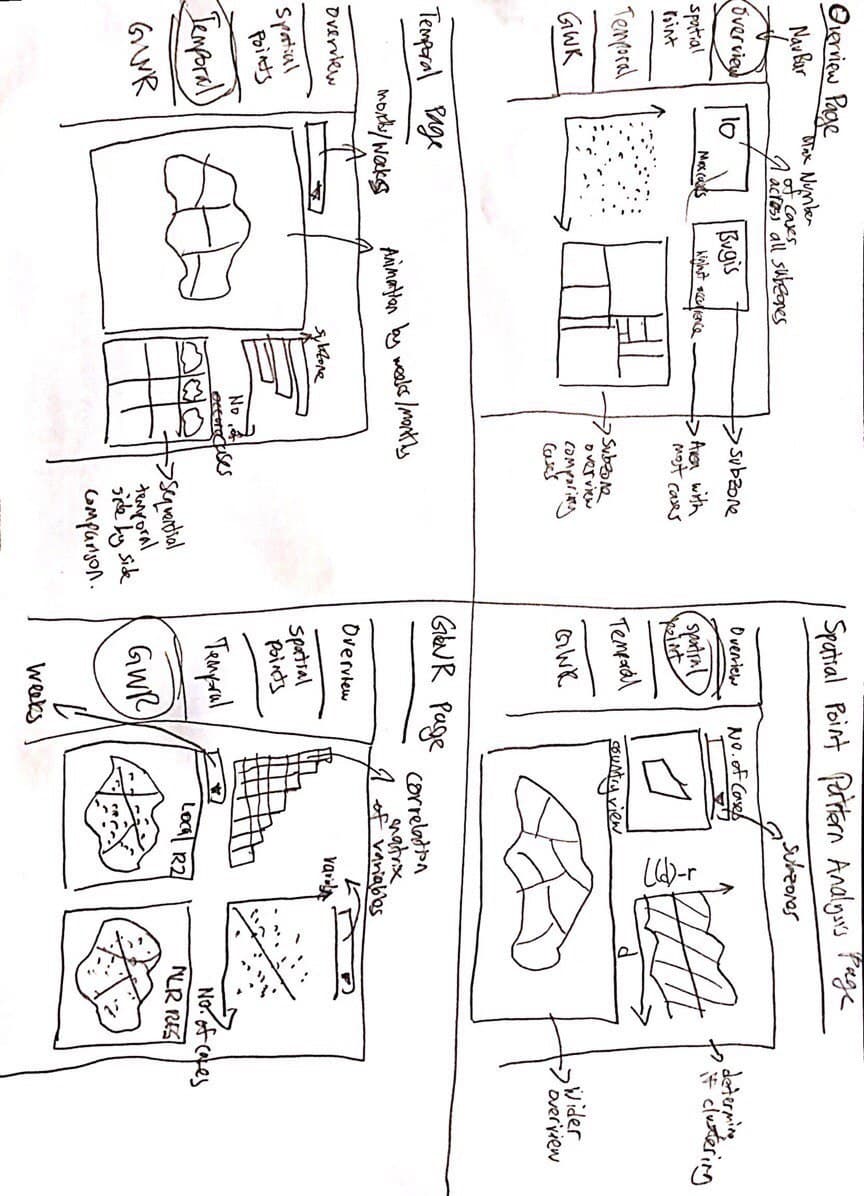 Overview Page
NavBar
Max Number
of cases
across all subzones
Overview
Spatial
Point
Temporal
GWR
10
Max cases
Bugis
highest occurrence
subzone
Area with
most cases
Subzone
overview
comparing
cases
Spatial Point Pattern Analysis Page
Subzones
Overview
Spatial
Point
Temporal
GWR
No. of Cases
country view
L(d)-r
d
determing
if clustering
Wider
overview
Temporal Page
months/weeks
Animation by weeks/monthly
Overview
Spatial
Points
Temporal
GWR
subzone
No. of
cases
Sequential
temporal
side by side
comparison.
GWR Page
correlation
matrix
of variables
Overview
Spatial
Points
Temporal
GWR
No. of cases
Local R2
MLR RES
Weeks